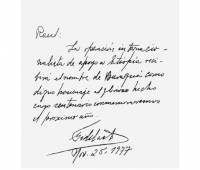 Raul:
La operación internacio-
nalista de apoyo a Etiopía reci-
birá el nombre de Baraguá como
digno homenaje al glorioso hecho
cuyo centenario conmemoraremos
el próximo año.
Nov. 25. 1977